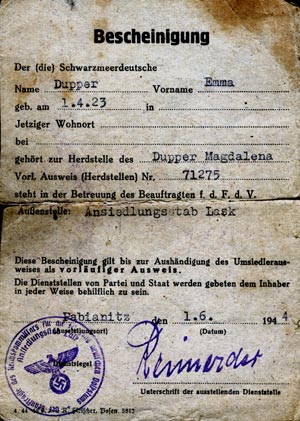 Bescheinigung
Der (die) Schwarzmeerdeutsche
Name Dupper Vorname Emma
geb. am 1.4.23 in
Jetziger Wohnort
bei
gehört zur Herdstelle des Dupper Magdalena
Vorl. Ausweis (Herdstellen) Nr. 71275
steht in der Betreuung des Beauftragten f. d. F. d. V.
Außenstelle: Ansiedlungsstab Lask
Diese Bescheinigung gilt bis zur Aushändigung des Umsiedlerausweises als vorläufiger Ausweis.
Die Dienststellen von Partei und Staat werden gebeten dem Inhaber
in jeder Weise behilflich zu sein.
Pabianitz den 1.6. 1944
(Ausstellungsort) (Datum)
Dienstsiegel
Unterschrift der ausstellenden Dienststelle
4. 44 Fleischer, Posen. 5512